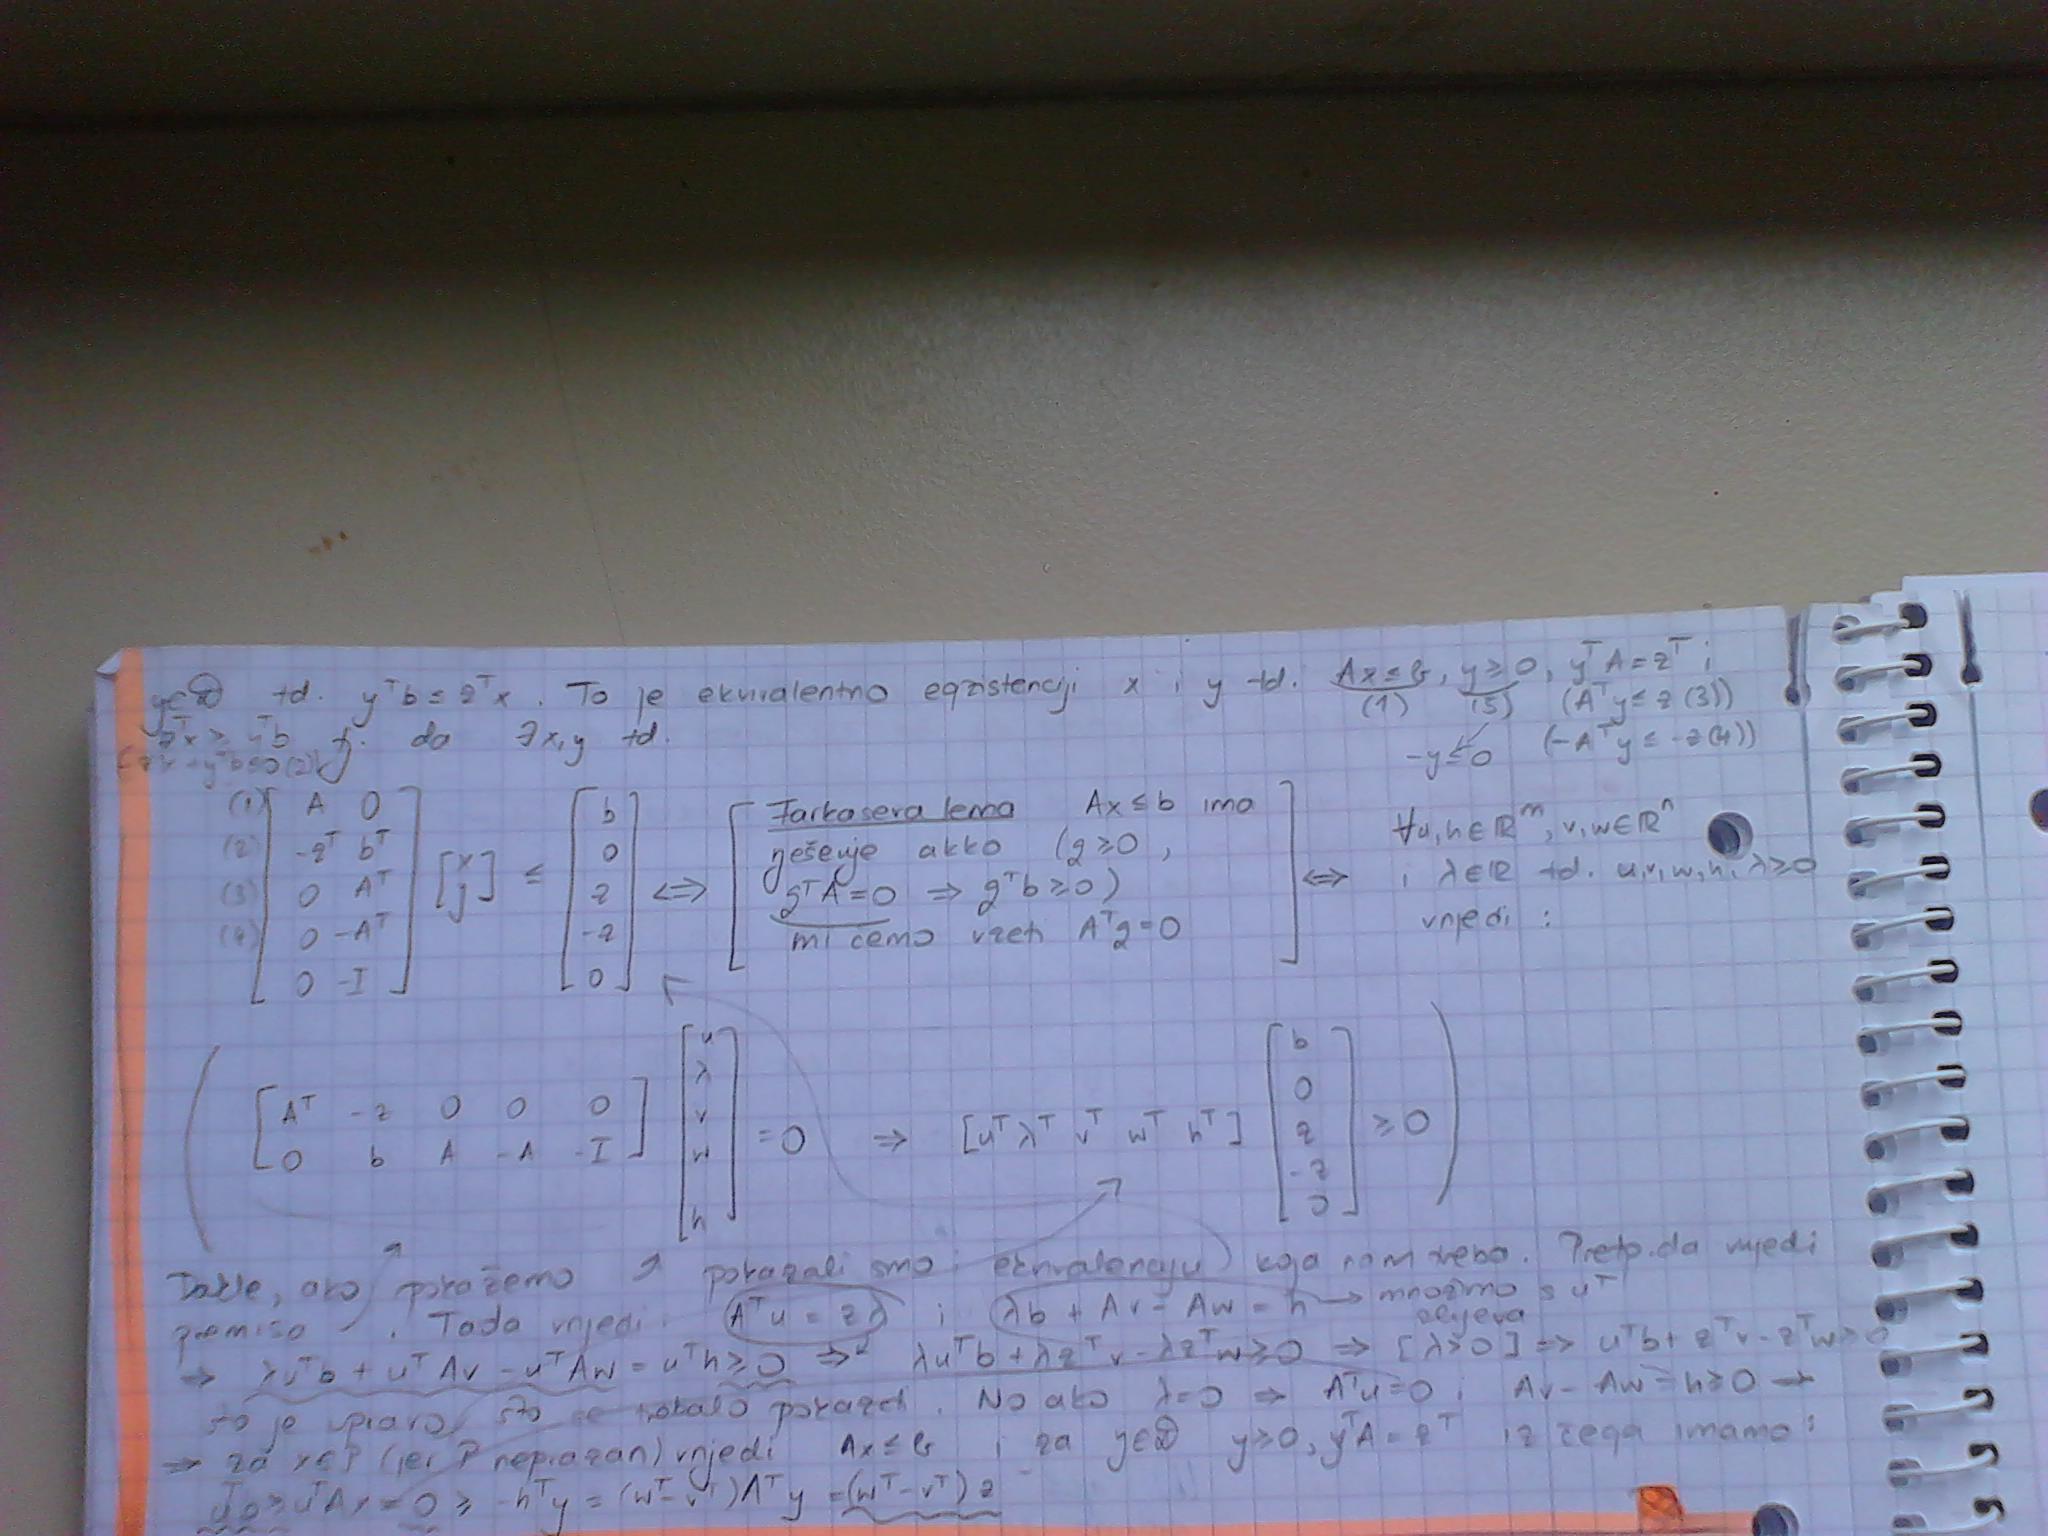 y∈D td. yᵀb ≤ zᵀx. To je ekvivalentno egzistenciji x i y td. Ax ≤ b, y ≥ 0, yᵀA = zᵀ i
(1) (5) (Aᵀy ≤ z (3))
zᵀx ≥ yᵀb tj. da ∃x,y td.
-y ≤ 0 (-Aᵀy ≤ -z (4))
(1) [ A 0 ] [ b ]
(2) [ -zᵀ bᵀ ] [ 0 ]
(3) [ 0 Aᵀ ] [x y] ≤ [ z ]
(4) [ 0 -Aᵀ ] [ -z ]
[ 0 -I ] [ 0 ]
⇔ [ Farkaseva lema Ax ≤ b ima
rješenje akko (z ≥ 0,
zᵀA = 0 ⇒ zᵀb ≥ 0)
mi ćemo vzeti Aᵀz = 0 ]
⇔ ∀u,h∈ℝᵐ, v,w∈ℝⁿ
i λ∈ℝ td. u,v,w,h,λ ≥ 0
vrijedi:
( [ Aᵀ -z 0 0 0 ] [ u λ v w h ] = 0 ⇒ [uᵀ λᵀ vᵀ wᵀ hᵀ] [ b 0 z -z 0 ] ≥ 0 )
[ 0 b A -A -I ]
Dakle, ako pokažemo ↗ pokazali smo i ekvivalenciju koja nam treba. Pretp. da vrijedi
premisa. Tada vrijedi: Aᵀu = zλ i λb + Av - Aw = h → množimo s uᵀ
slijeva
→ λuᵀb + uᵀAv - uᵀAw = uᵀh ≥ 0 ⇒ λuᵀb + λzᵀv - λzᵀw ≥ 0 ⇒ [λ>0] ⇒ uᵀb + zᵀv - zᵀw ≥ 0
što je upravo što se trebalo pokazati. No ako λ=0 ⇒ Aᵀu=0 i Av - Aw = h ≥ 0 →
→ za x∈P (jer P neprazan) vrijedi Ax ≤ b i za y∈D y ≥ 0, yᵀA = zᵀ iz čega imamo:
uᵀb ≥ uᵀAx = 0 ≥ -hᵀy = (wᵀ-vᵀ)Aᵀy = (wᵀ-vᵀ)z